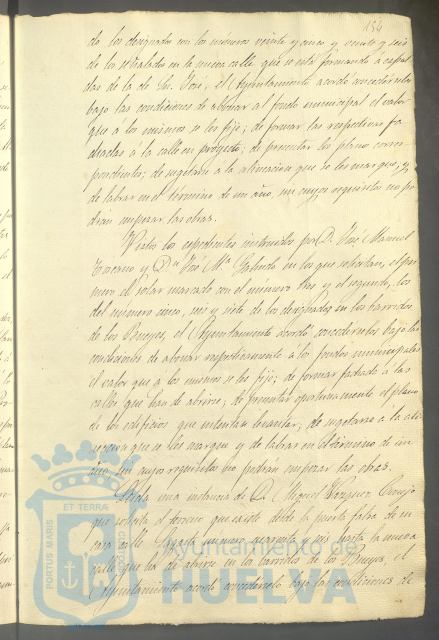 154
de los designados con los números veinte y cinco y veinte y seis
de los señalados en la nueva calle que se está formando á espal
das de la de Sn. José, el Ayuntamiento acordó concederselos
bajo las condiciones de abonar al fondo municipal el valor
que á los mismos se les fije; de formar las respectivas fa
chadas á la calle en proyecto; de presentar los planos corres
pondientes; de sugetarse á la alineacion que se les marque, y
de labrar en el término de un año, sin cuyos requisitos no po
drán empezar las obras.
Vistos los espedientes instruidos por D. José Manuel
Toscano y Dn José Ma. Galindo en los que solicitan, el pri
mero el solar marcado con el número tres y el segundo, los
del número cinco, seis y siete de los designados en los corridos
de los Bueyes, el Ayuntamiento acordó concederselos bajo las
condiciones de abonar respectivamente á los fondos municipales
el valor que á los mismos se les fije; de formar fachada á las
calles que han de abrirse; de presentar oportunamente el plano
de los edificios que intentan levantar; de sugetarse á la ali
neacion que se les marque y de labrar en el término de un
año, sin cuyos requisitos no podrán empezar las obras.
Leida una instancia de D. Miguel Vazquez
que solicita el terreno que existe desde la puerta falsa de su
casa calle número cuarenta y seis hasta la nueva
calle que ha de abrirse en los corrides de los Bueyes, el
Ayuntamiento acordó concederselo bajo las condiciones de
ET TERRA
PORTUS MARIS
CUSTODIA
Ayuntamiento de
HUELVA